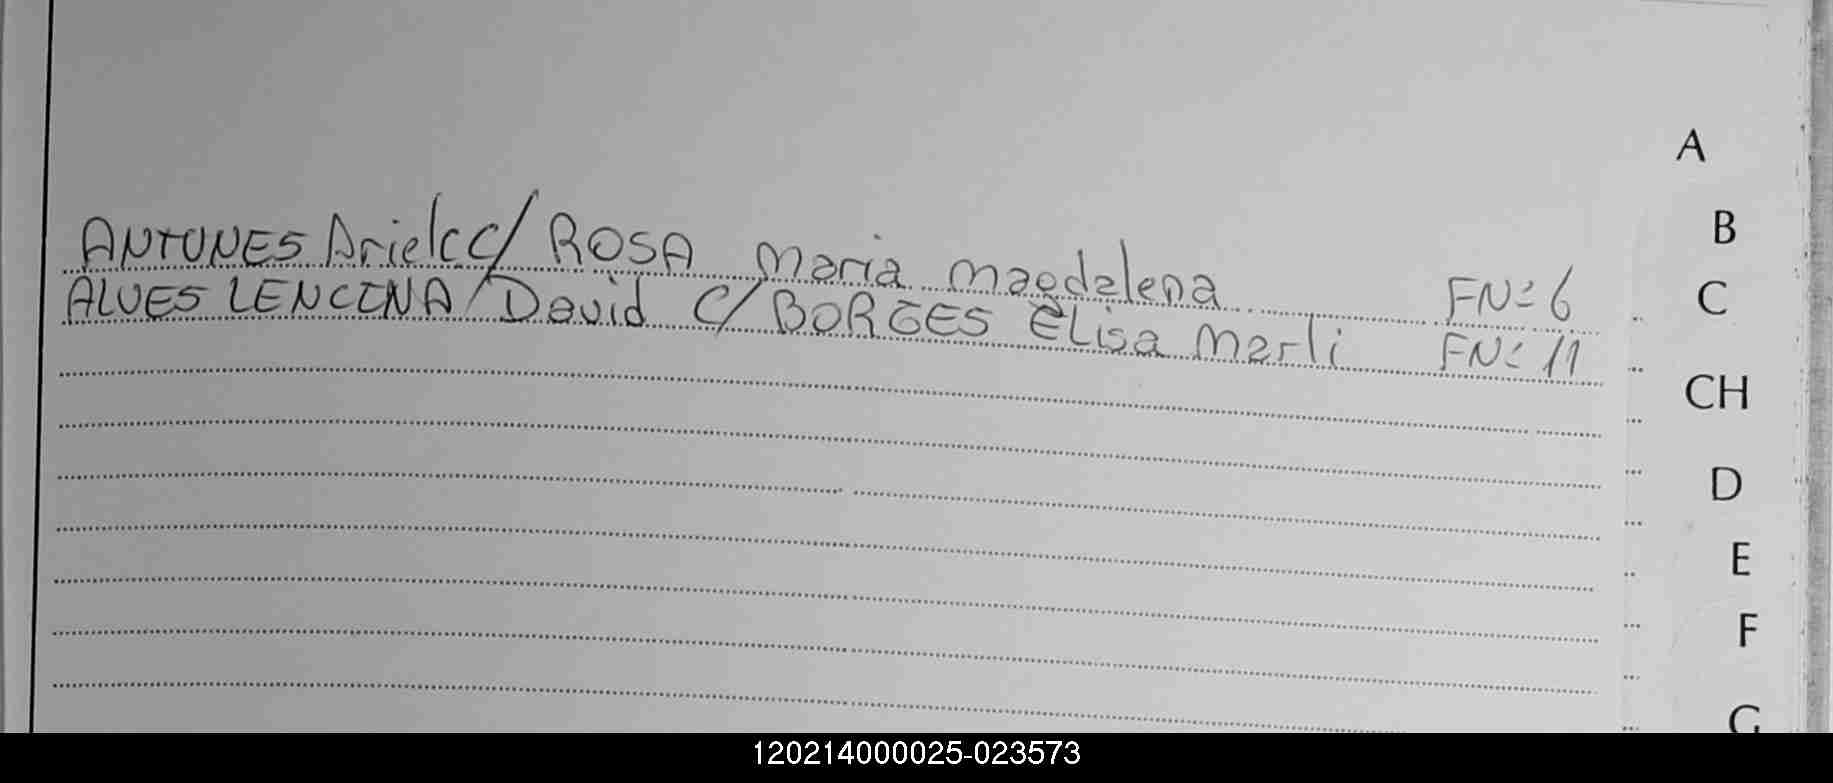 ANTUNES Ariel c/ ROSA Maria Magdalena FNº 6
ALVES LENCINA David C/ BORGES Elisa Marli FNº 11
A
B
C
CH
D
E
F
G
120214000025-023573